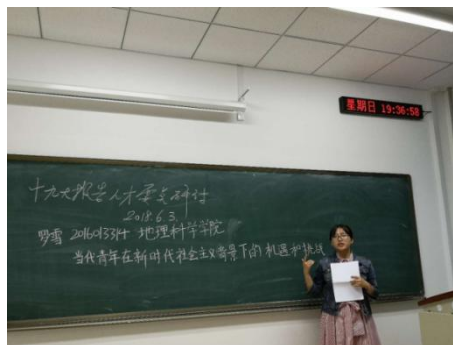 星期日 19:36:58
十九大报告人才要交研讨
2018.6.3.
罗雪 201601334 地理科学学院
当代青年在新时代社会主义背景下的机遇和挑战